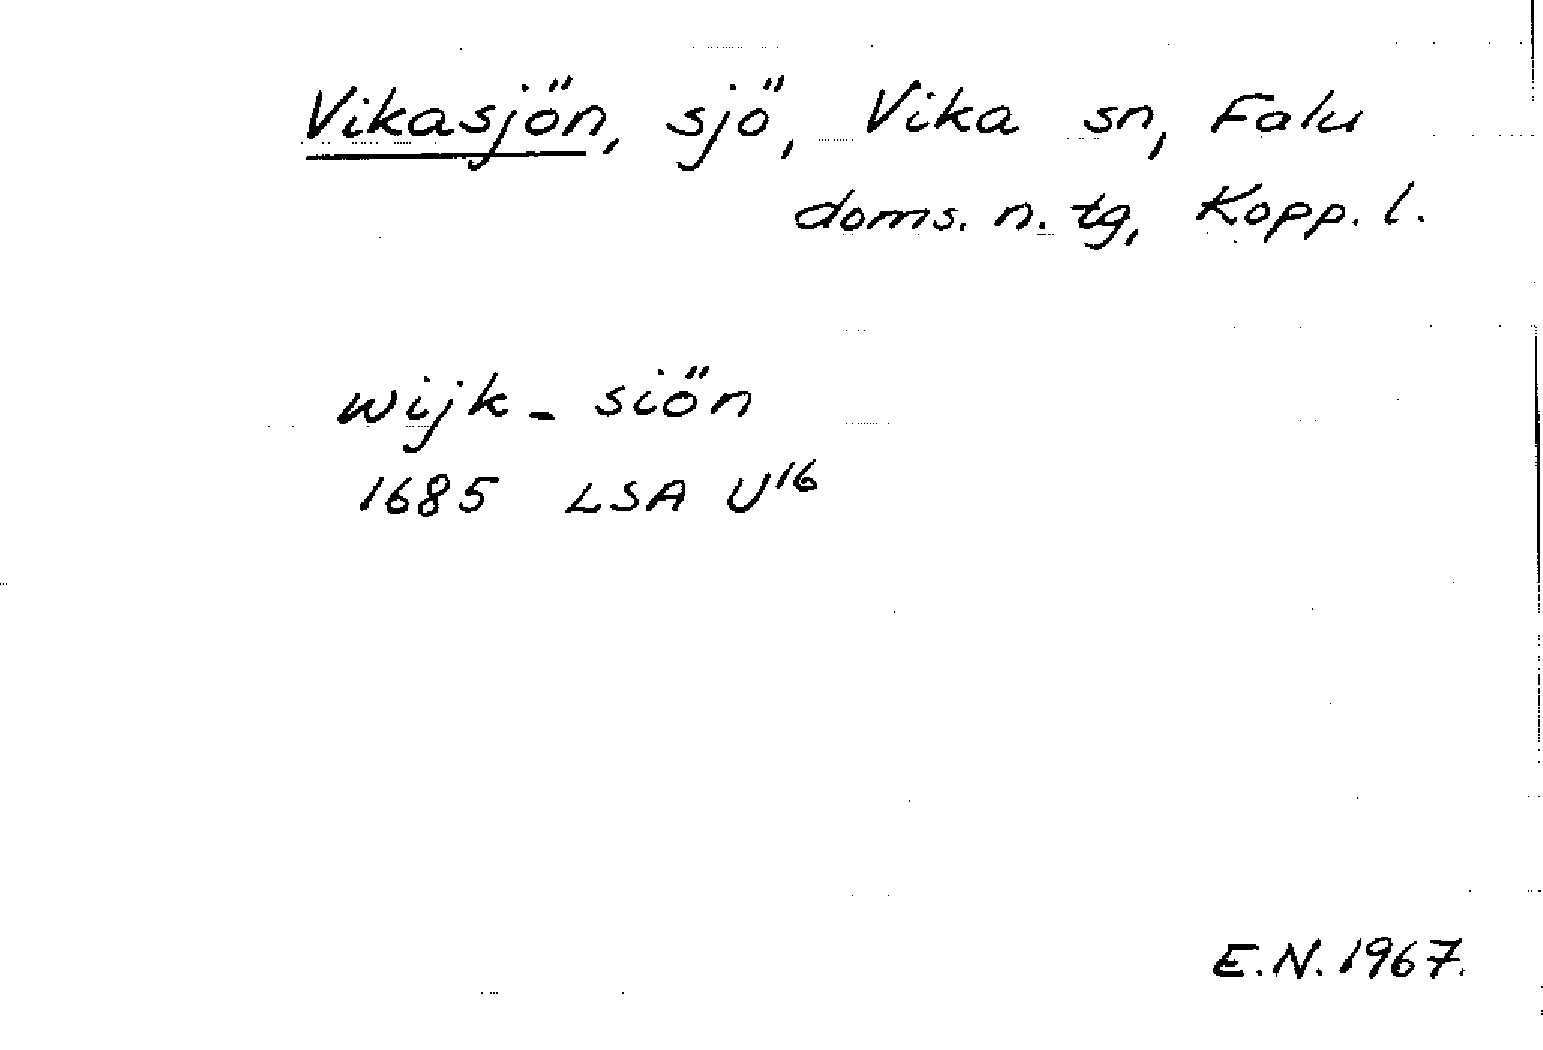 Vikasjön, sjö, Vika sn, Falu
doms. n. tg, Kopp. l.
wijk - siön
1685 LSA U16
E.N. 1967.